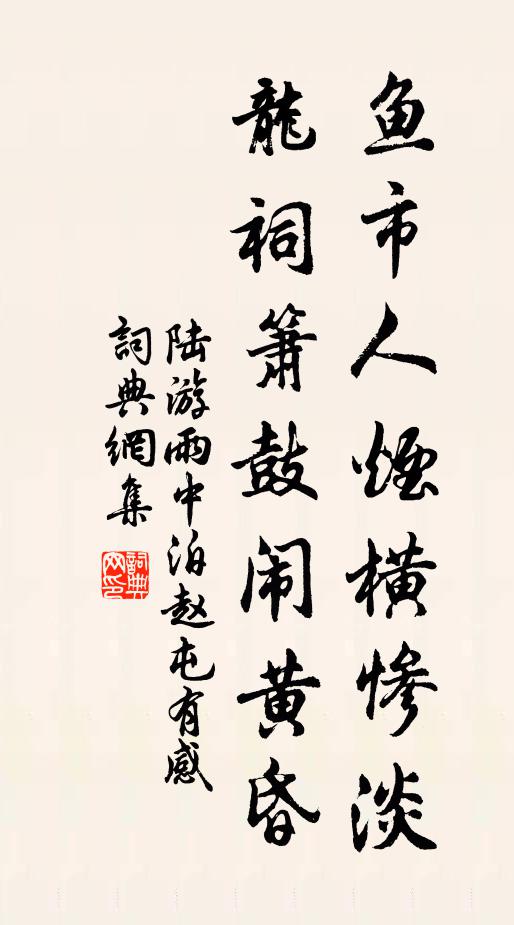 鱼市人煙橫慘淡
龍祠簫鼓闹黄昏
陆游雨中泊赵屯有感
詞典網集
詞典网印